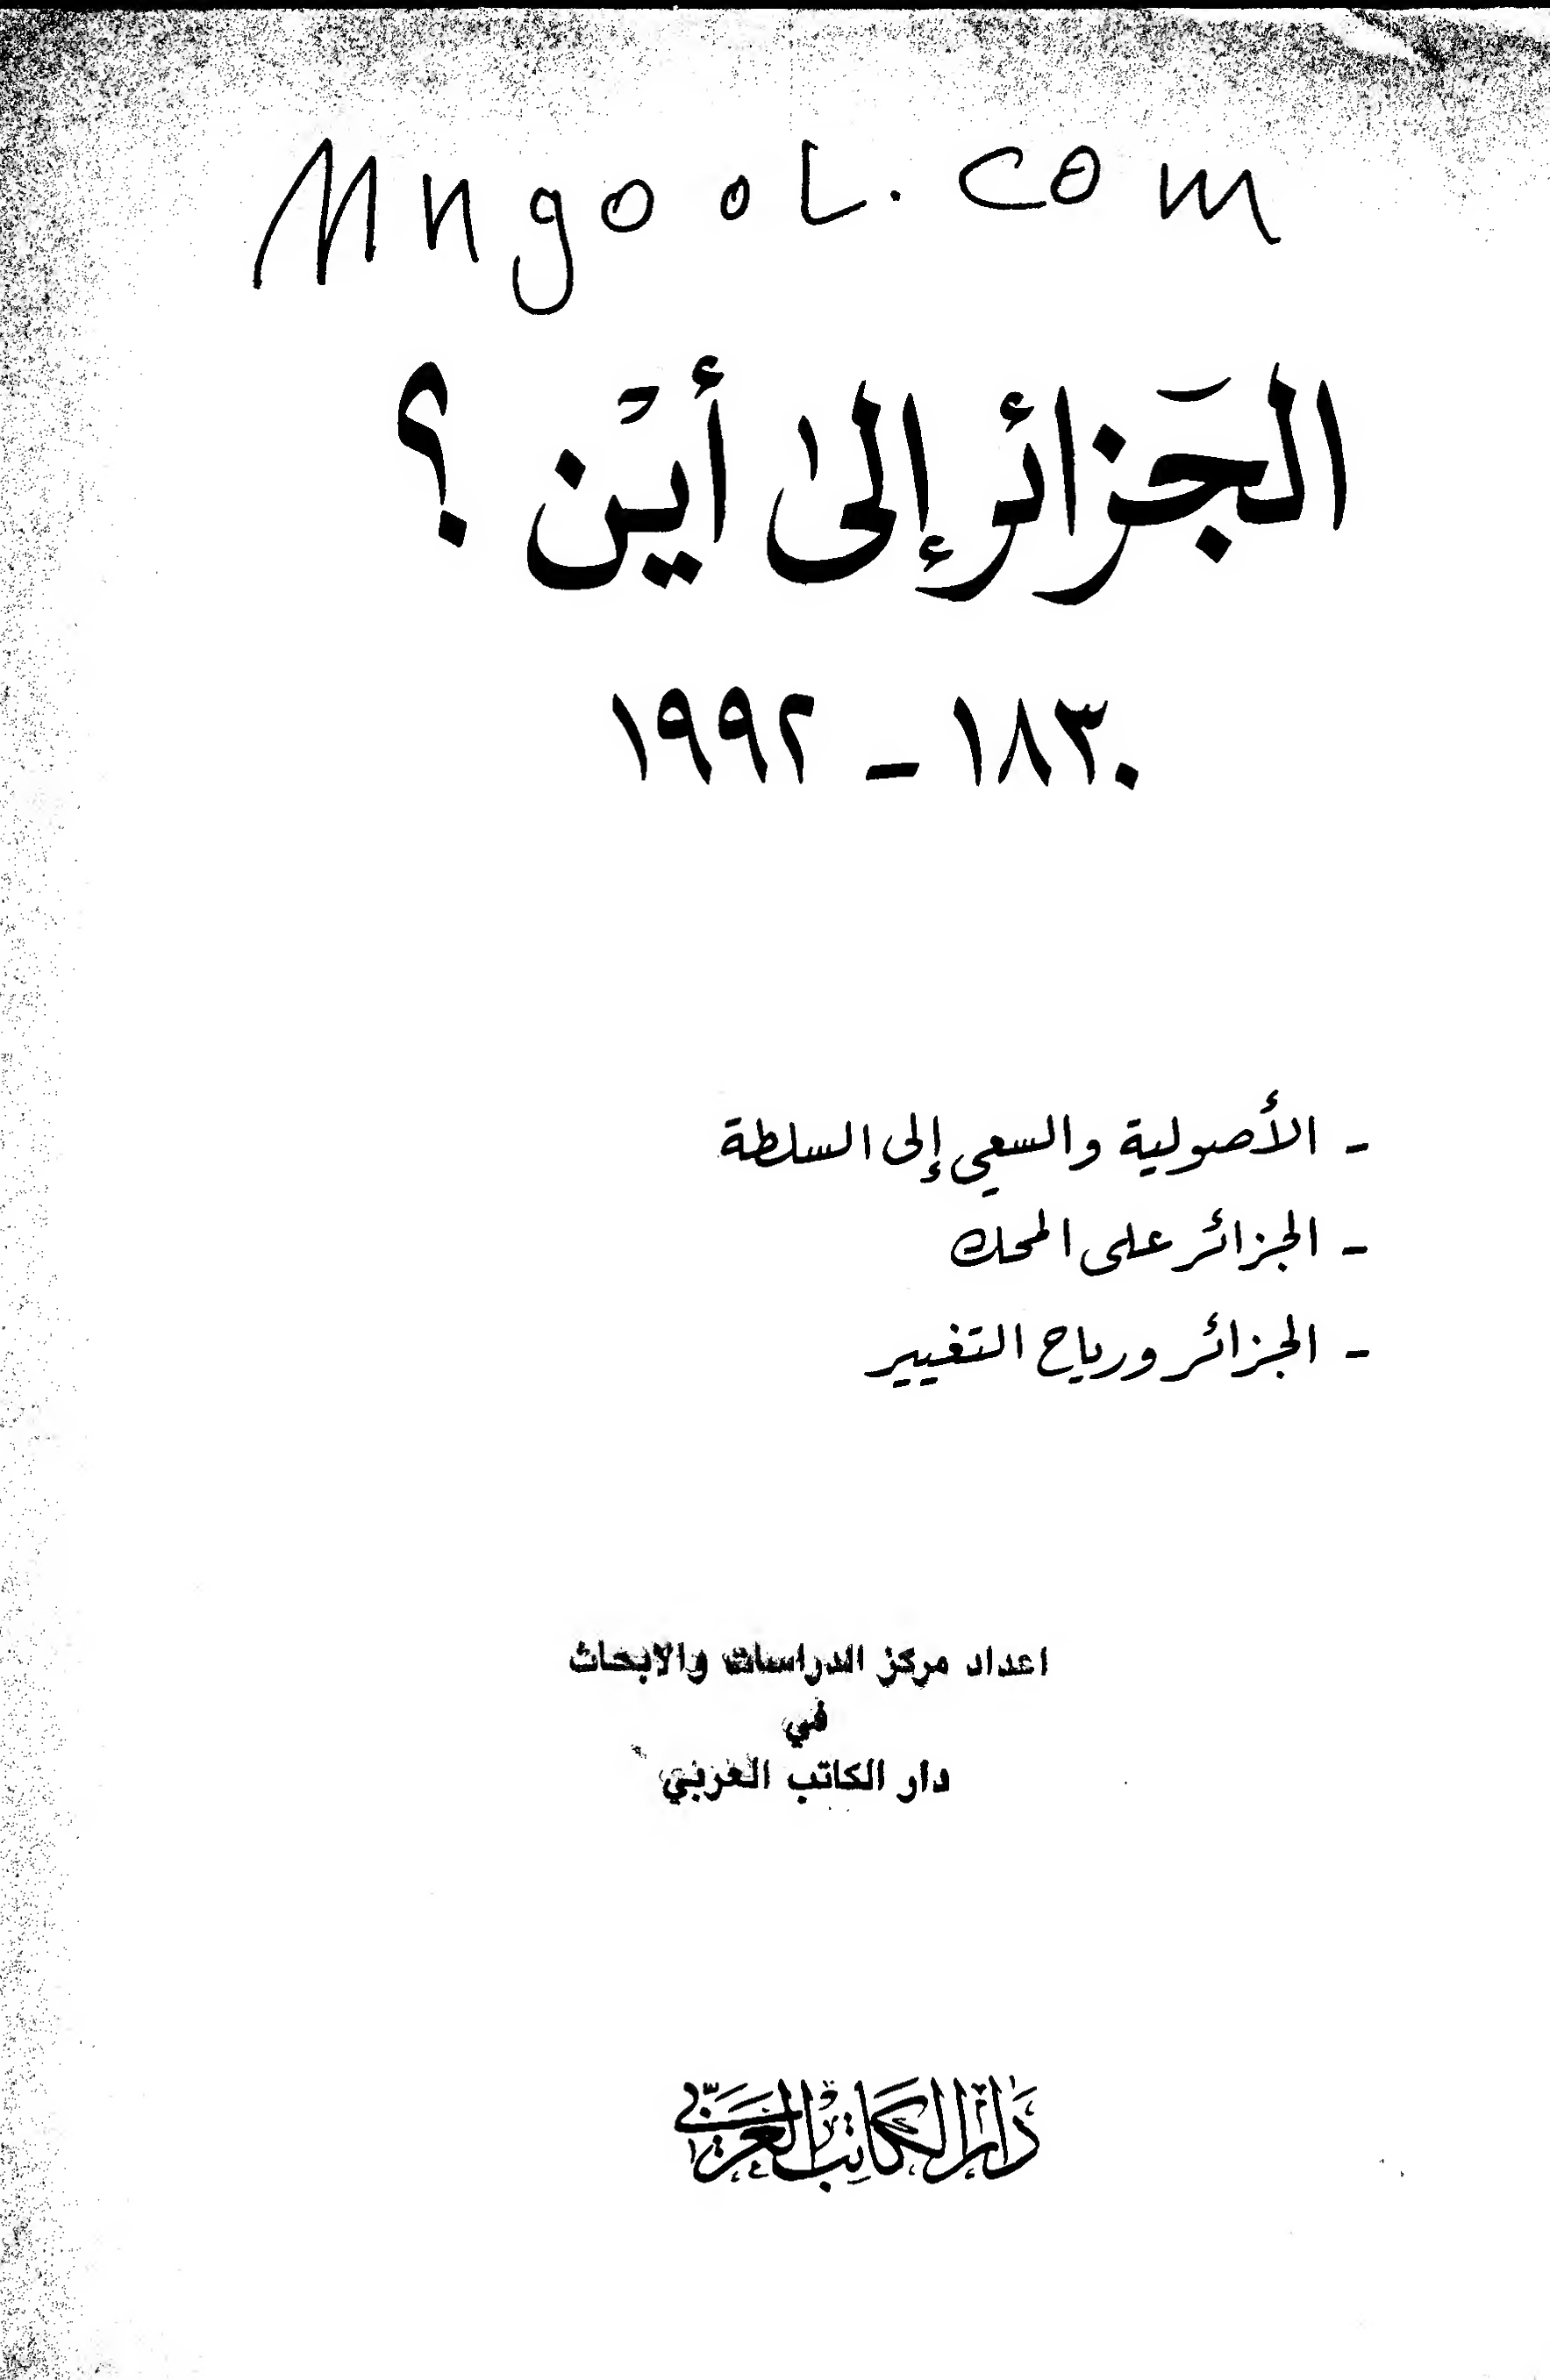 Mngool.com
الجَزائر إلىٰ أيْن ؟
١٨٣٠ - ١٩٩٢
- الأصولية والسعي إلى السلطة
- الجزائر على المحك
- الجزائر ورياح التغيير
اعداد مركز الدراسات والابحاث
في
دار الكاتب العربي
دَار الكَاتِب العَرَبي